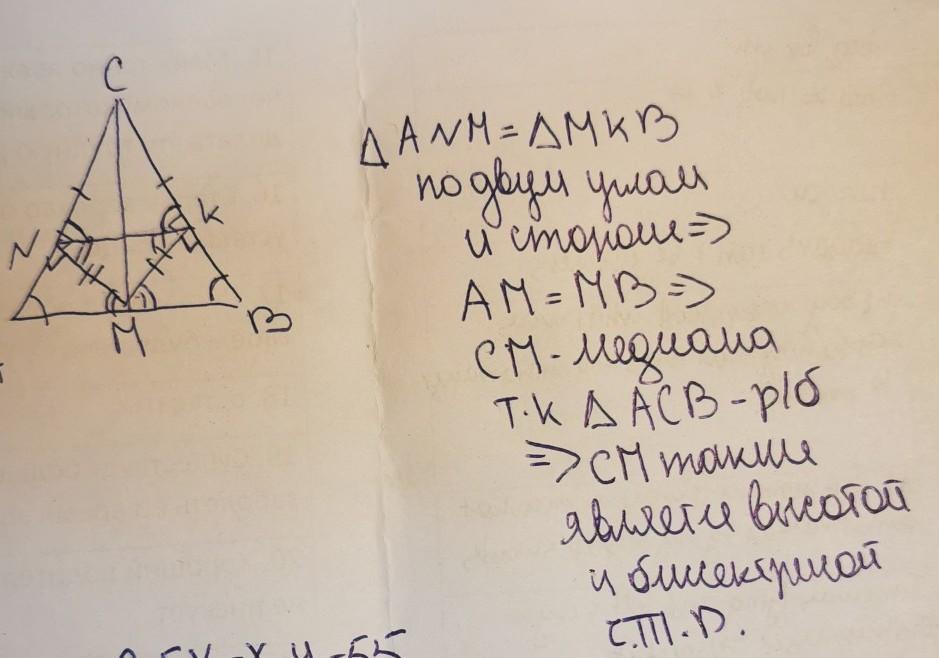 C
N
K
M
B
△ANM = △MKB
по двум углам
и стороне ⇒
AM = MB ⇒
CM - медиана
т.к △ ACB - р/б
⇒ CM также
является высотой
и бисектрисой
С.Т.D.